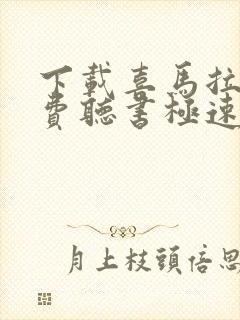 下載喜馬拉
費聽書極速
月上枝頭倍思